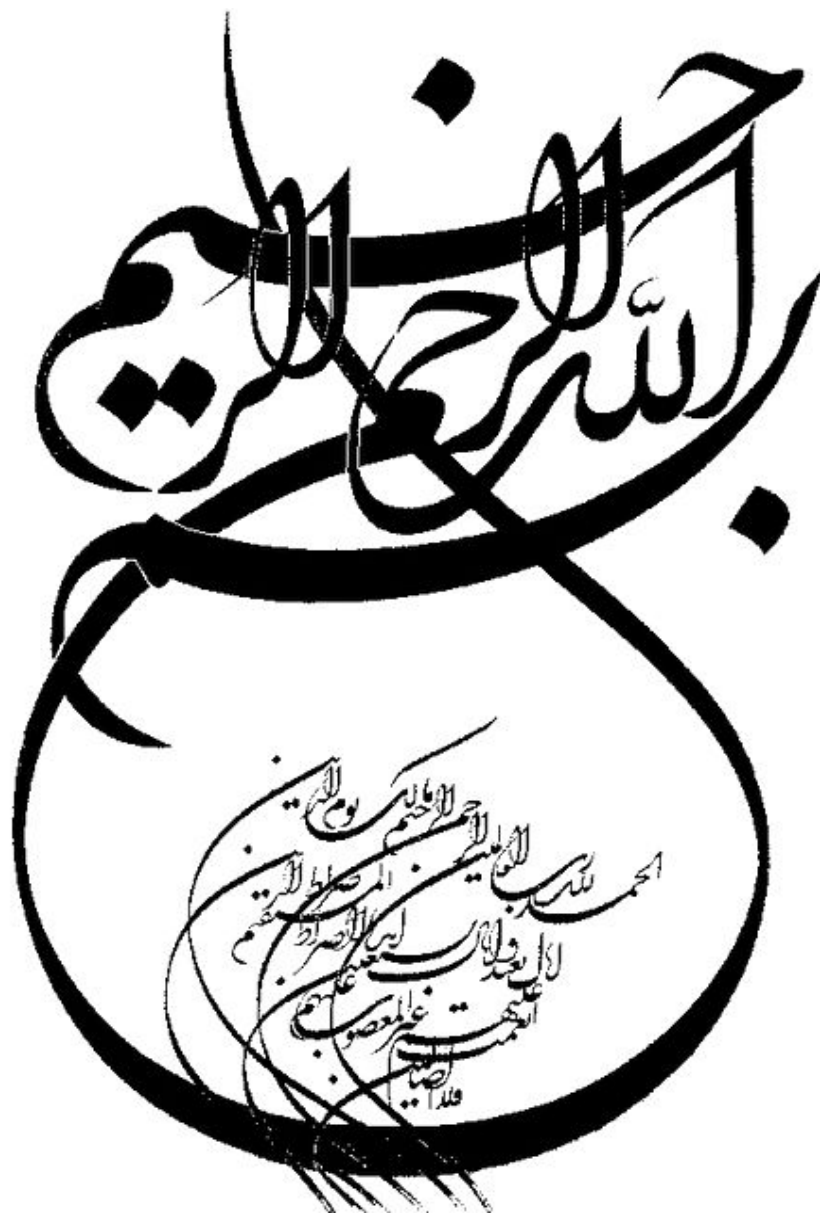 بسم الله الرحمن الرحیم
الحمد لله رب العالمین الرحمن الرحیم مالک یوم الدین
ایاک نعبد وایاک نستعین اهدنا الصراط المستقیم صراط الذین
انعمت علیهم غیر المغضوب علیهم
ولا الضالین